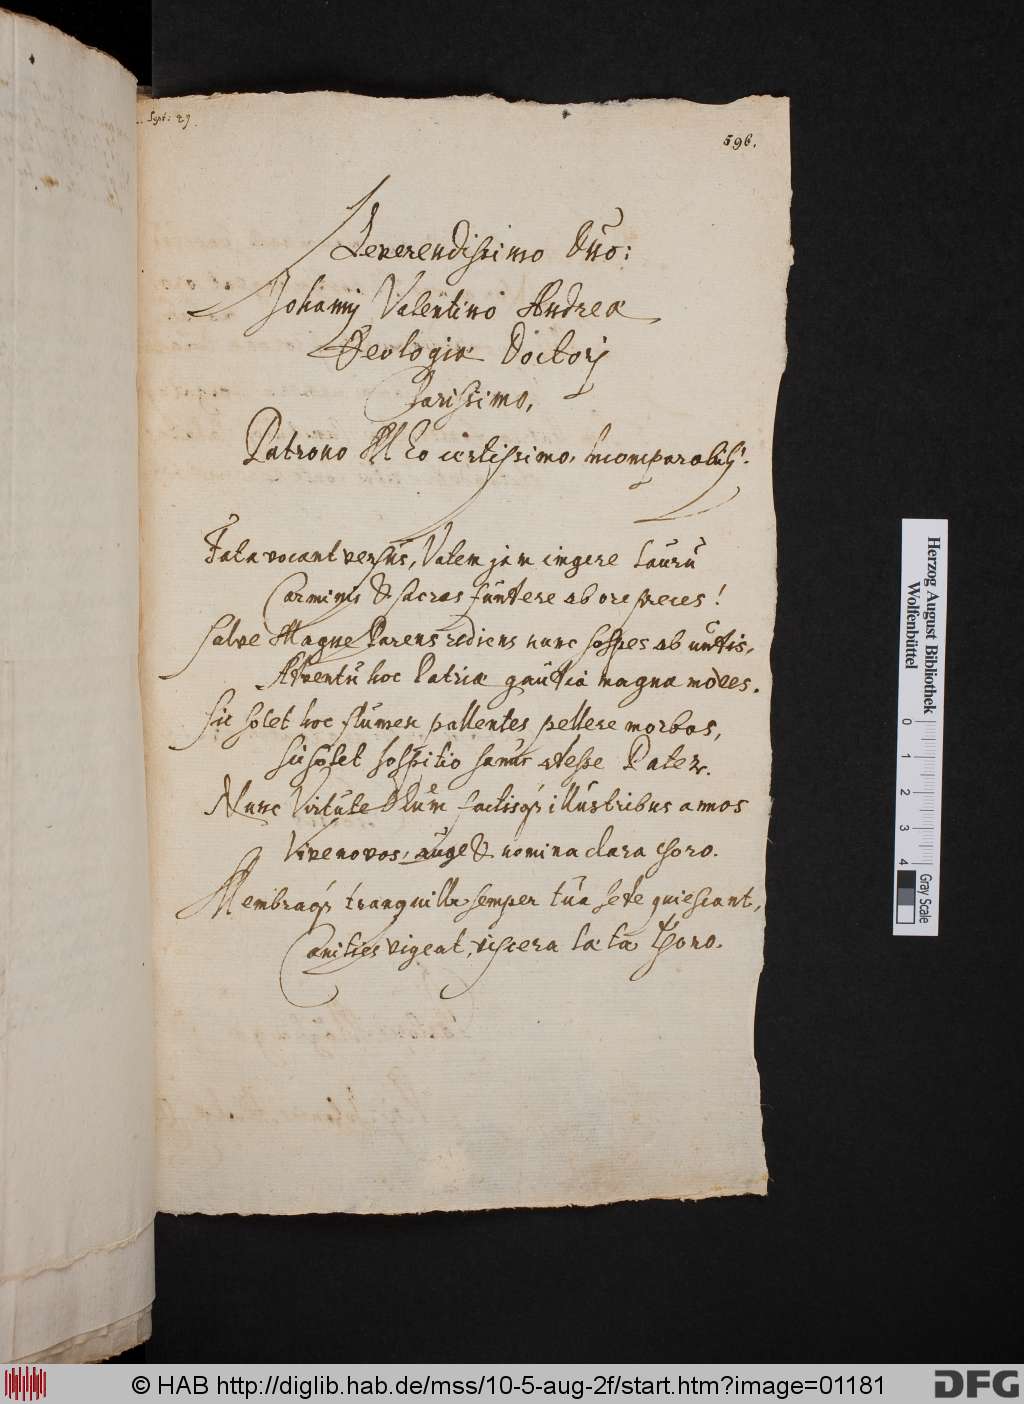 Sept: 29.
596.
Reverendissimo Dno:
Johannj Valentino Andreæ
Theologiæ Doctorj
Clarissimo,
Patrono Meo certissimo, Incomparabilj.
Fata vocant versus, Vatem jam cingere lauru
Carminis & sacras fundere ab ore preces!
Salve Magne Parens rediens nunc sospes ab undis,
Adventu hoc Patriæ gaudia magna moves.
Sic solet hoc flumen pallentes pellere morbos,
Sic solet hospitio adesse Pater.
Nunc Virtute Deum factisq; illustribus annos
Vive novos, auge & nomina clara choro.
Membraq; tranquilla semper tua sede quiescant,
Canities vigeat, viscera læta thoro.
Herzog August Bibliothek
Wolfenbüttel
0 1 2 3 4
Gray Scale
© HAB http://diglib.hab.de/mss/10-5-aug-2f/start.htm?image=01181
DFG